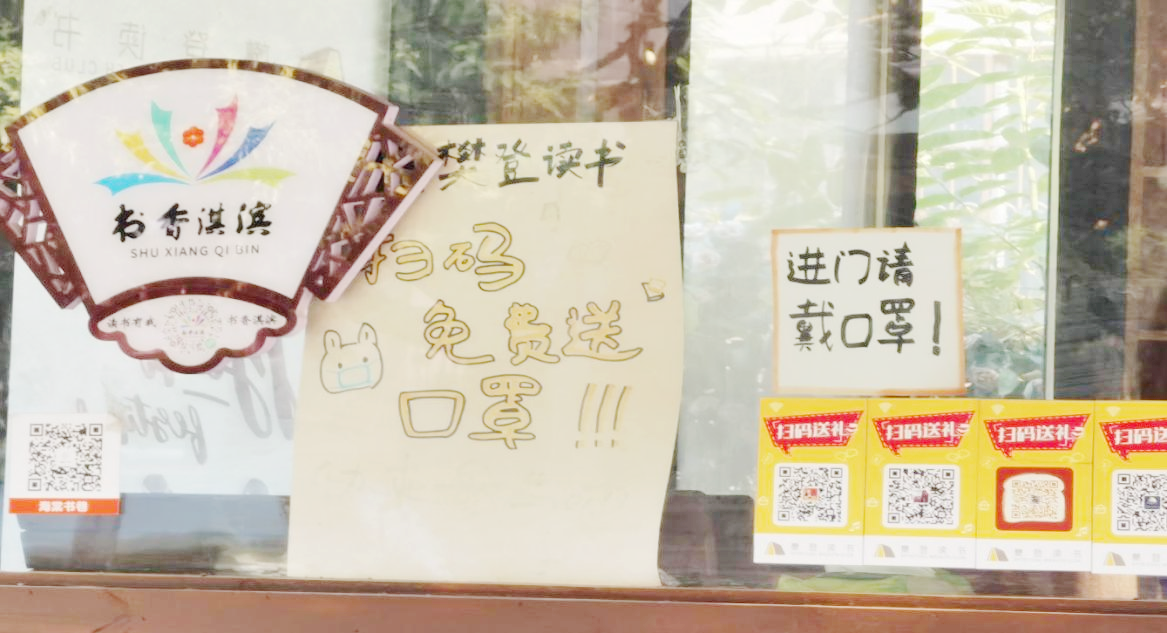 书香淇滨
SHU XIANG QI BIN
读书有我 书香淇滨
海棠书巷
樊登读书
扫码
免费送
口罩!!!
进门请
戴口罩!
扫码送礼
扫码送礼
扫码送礼
扫码送